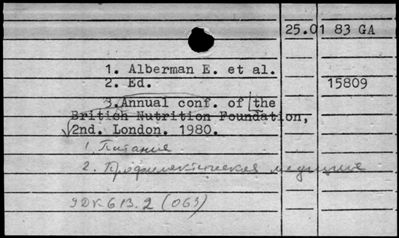 25.01 83 GA
1. Alberman E. et al.
2. Ed.
15809
3. Annual conf. of the
British Nutrition Foundation,
2nd. London. 1980.
1. Питание
2. Профилактическая медицина
УДК 613.2 (063)